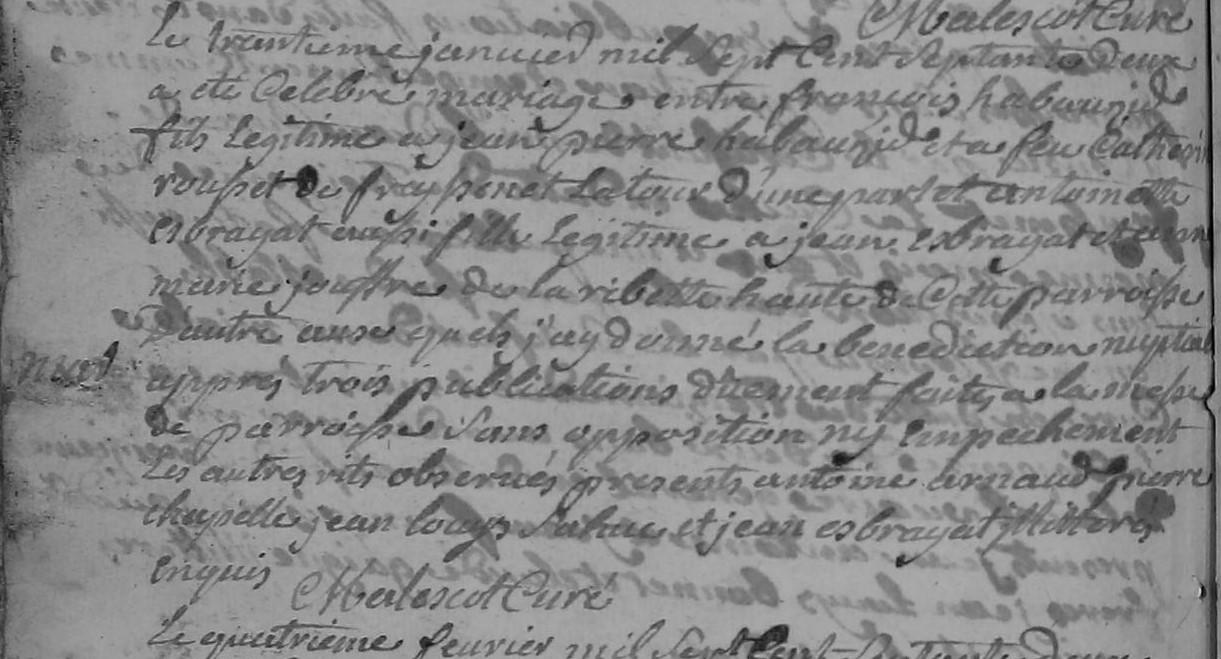 Malescot Curé
Le trantieme janvier mil Sept Cent Septante deux
a ete Celebré mariage entre françois habauzid
fils Legitime a jean pierre habauzid et a feu Catherin
rousset de frayssenet Latour d'une part et antoinette
esbrayat aussi fille Legitime a jean esbrayat et
marie jouffre de la ribette haute de Cette parroisse
D'autre auxquels j'ay donné la benediction nuptial
appres trois publications düement faites a la messe
de parroisse Sans opposition ny empechement
Les autres rits observés presents antoine arnaud pierre
chapelle jean louys et jean esbrayat illitterés
enquis
Malescot Curé
Le quatrieme fevrier mil Sept Cent Septante deux